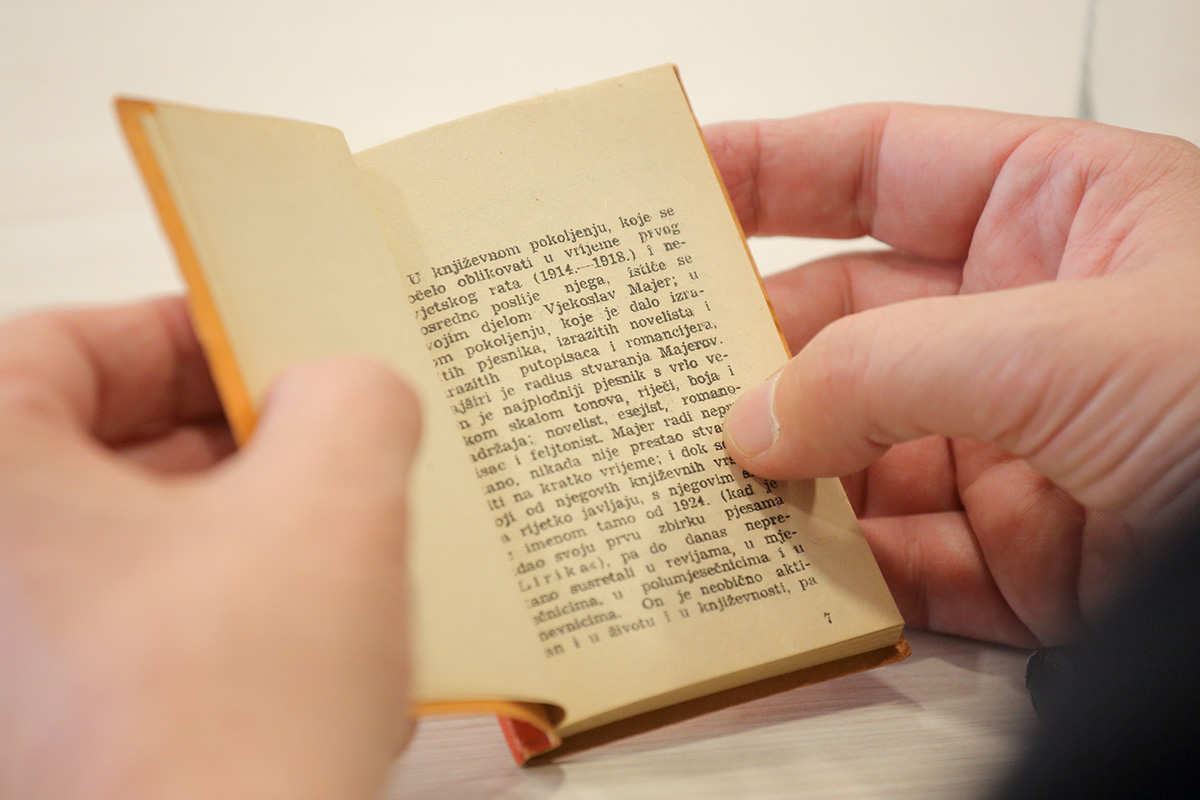 U književnom pokoljenju, koje se
očelo oblikovati u vrijeme prvog
vjetskog rata (1914.—1918.) i ne-
osredno poslije njega, ističe se
vojim djelom Vjekoslav Majer; u
om pokoljenju, koje je dalo izra-
tih pjesnika, izrazitih novelista i
razitih putopisaca i romancijera,
ajširi je radius stvaranja Majerov.
n je najplodniji pjesnik s vrlo ve-
kom skalom tonova, riječi, boja i
adržaja; novelist, esejist, romano-
isac i feljtonist. Majer radi nepr
ano, nikada nije prestao stva
iti na kratko vrijeme; i dok se
oji od njegovih književnih vr
a rijetko javljaju, s njegovim
imenom tamo od 1924. (kad je
dao svoju prvu zbirku pjesama
Lirika«), pa do danas nepre-
ano susretali u revijama, u mje-
ečnicima, u polumjesečnicima i u
nevnicima. On je neobično akti-
an i u životu i u književnosti, pa
7